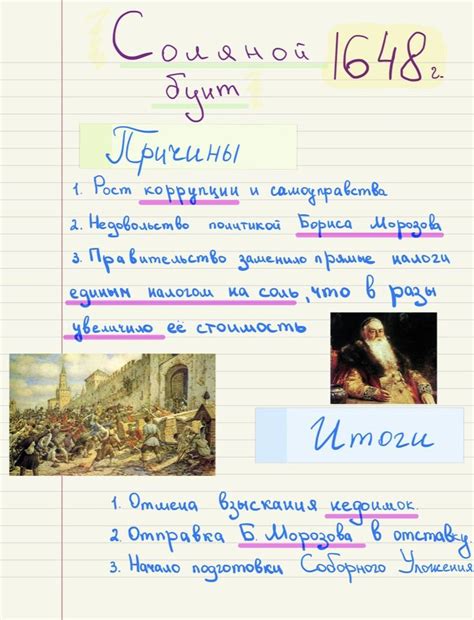 Соляной 1648 г.
бунт
Причины
1. Рост коррупции и самоуправства
2. Недовольство политикой Бориса Морозова
3. Правительство заменило прямые налоги
единым налогом на соль, что в разы
увеличило её стоимость
Итоги
1. Отмена взыскания недоимок.
2. Отправка Б. Морозова в отставку.
3. Начало подготовки Соборного Уложения